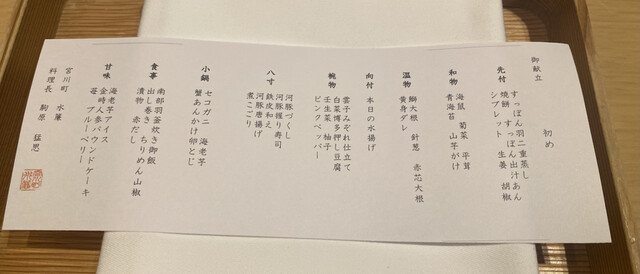 御献立
初め
先付
すっぽん羽二重蒸し
焼餅 すっぽん出汁あん
シブレット 生姜 胡椒
和物
海鼠 菊菜 平茸
青海苔 山芋がけ
温物
鰤大根 針葱 赤芯大根
黄身ダレ
向付
本日の水揚げ
椀物
雲子みぞれ仕立て
白菜博多押し豆腐
壬生菜 柚子
ピンクペッパー
八寸
河豚づくし
河豚握り寿司
鉄皮和え
河豚唐揚げ
煮こごり
小鍋
セコガニ 海老芋
蟹あんかけ 卵とじ
食事
南部羽釜炊き御飯
出し巻き ちりめん山椒
漬物 赤だし
甘味
海老芋アイス
金時人参パウンドケーキ
苺 ブルーベリー
宮川町 水簾
料理長 駒原 猛思